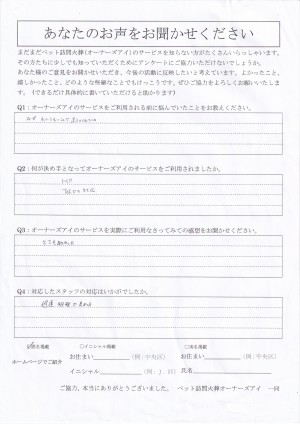 あなたのお声をお聞かせください
まだまだペット訪問火葬(オーナーズアイ)のサービスを知らない方がたくさんいらっしゃいます。
その方たちに少しでも知っていただくためにアンケートにご協力いただけないでしょうか。
あなた様のご意見をお聞かせいただき、今後の活動に反映したいと考えています。よかったこと、
嬉しかったこと、どのような些細なことでもけっこうです。ぜひご協力をよろしくお願いいたしま
す。(できるだけ具体的に書いていただけると助かります)
Q1:オーナーズアイのサービスをご利用される前に悩んでいたことをお教えください。
Q2:何が決め手となってオーナーズアイのサービスをご利用されましたか。
HP
Q3:オーナーズアイのサービスを実際にご利用なさってみての感想をお聞かせください。
Q4:対応したスタッフの対応はいかがでしたか。
匿名掲載 □イニシャル掲載 □実名掲載
ホームページでご紹介
お住まい (例:中央区) お住まい (例:中央区)
イニシャル (例:J.H) 氏名
ご協力、本当にありがとうございました。 ペット訪問火葬オーナーズアイ 一同